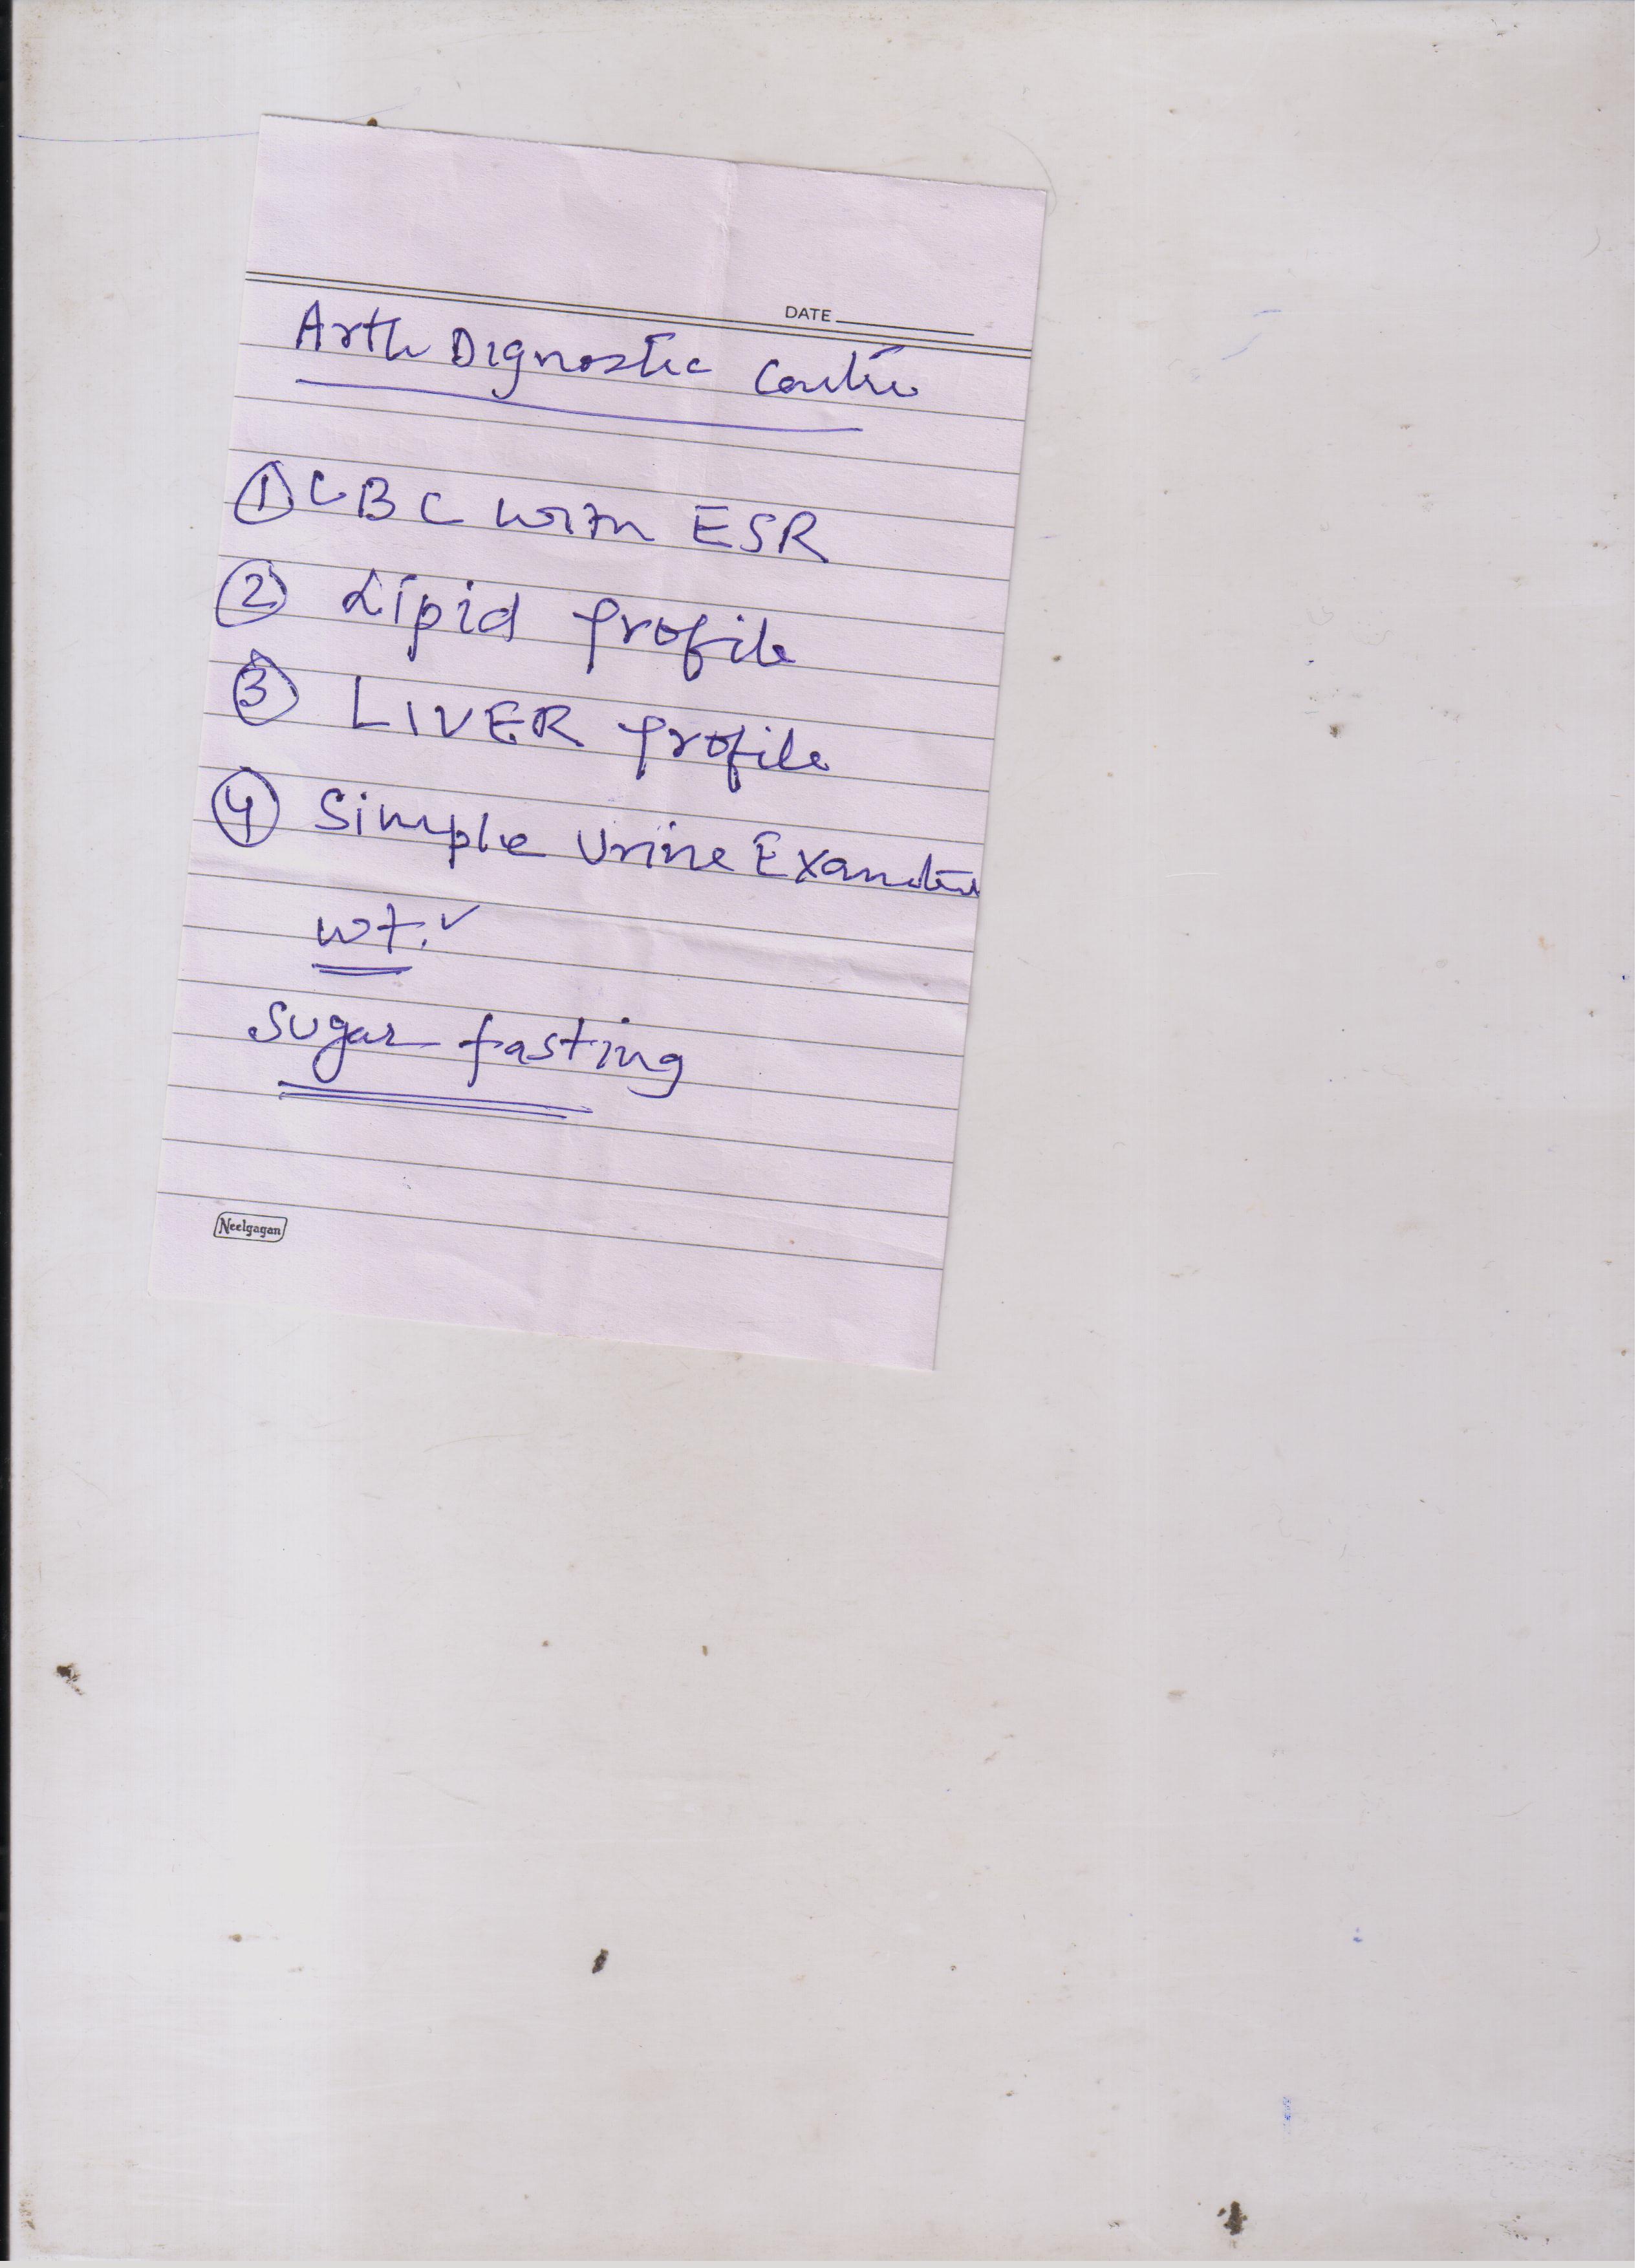 DATE
Arth Dignostic Centre
① CBC with ESR
② Lipid profile
③ LIVER profile
④ Simple Urine
wt. ✓
Sugar fasting
Neelgagan